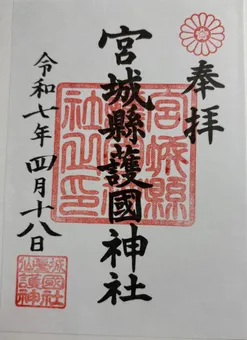 奉拝
宮城縣護國神社
令和七年四月十八日
宮城縣護國神社之印